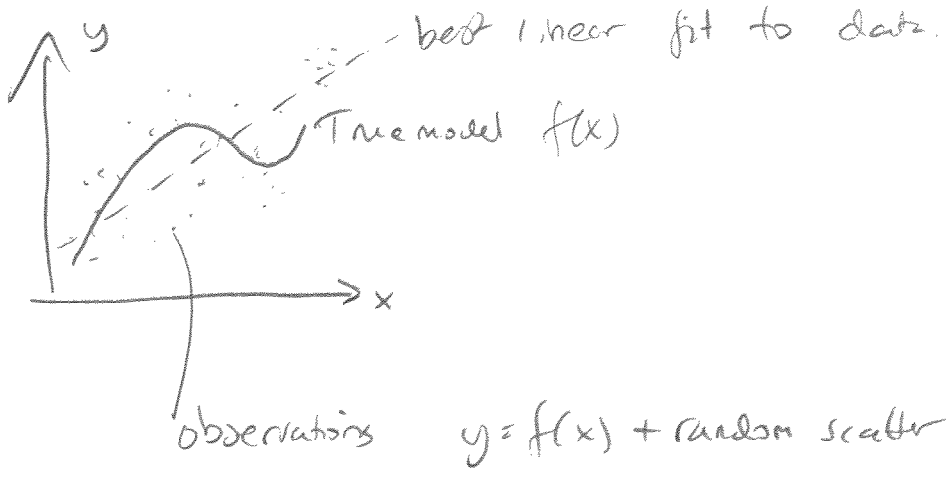 y
best linear fit to data.
True model f(x)
x
observations y = f(x) + random scatter